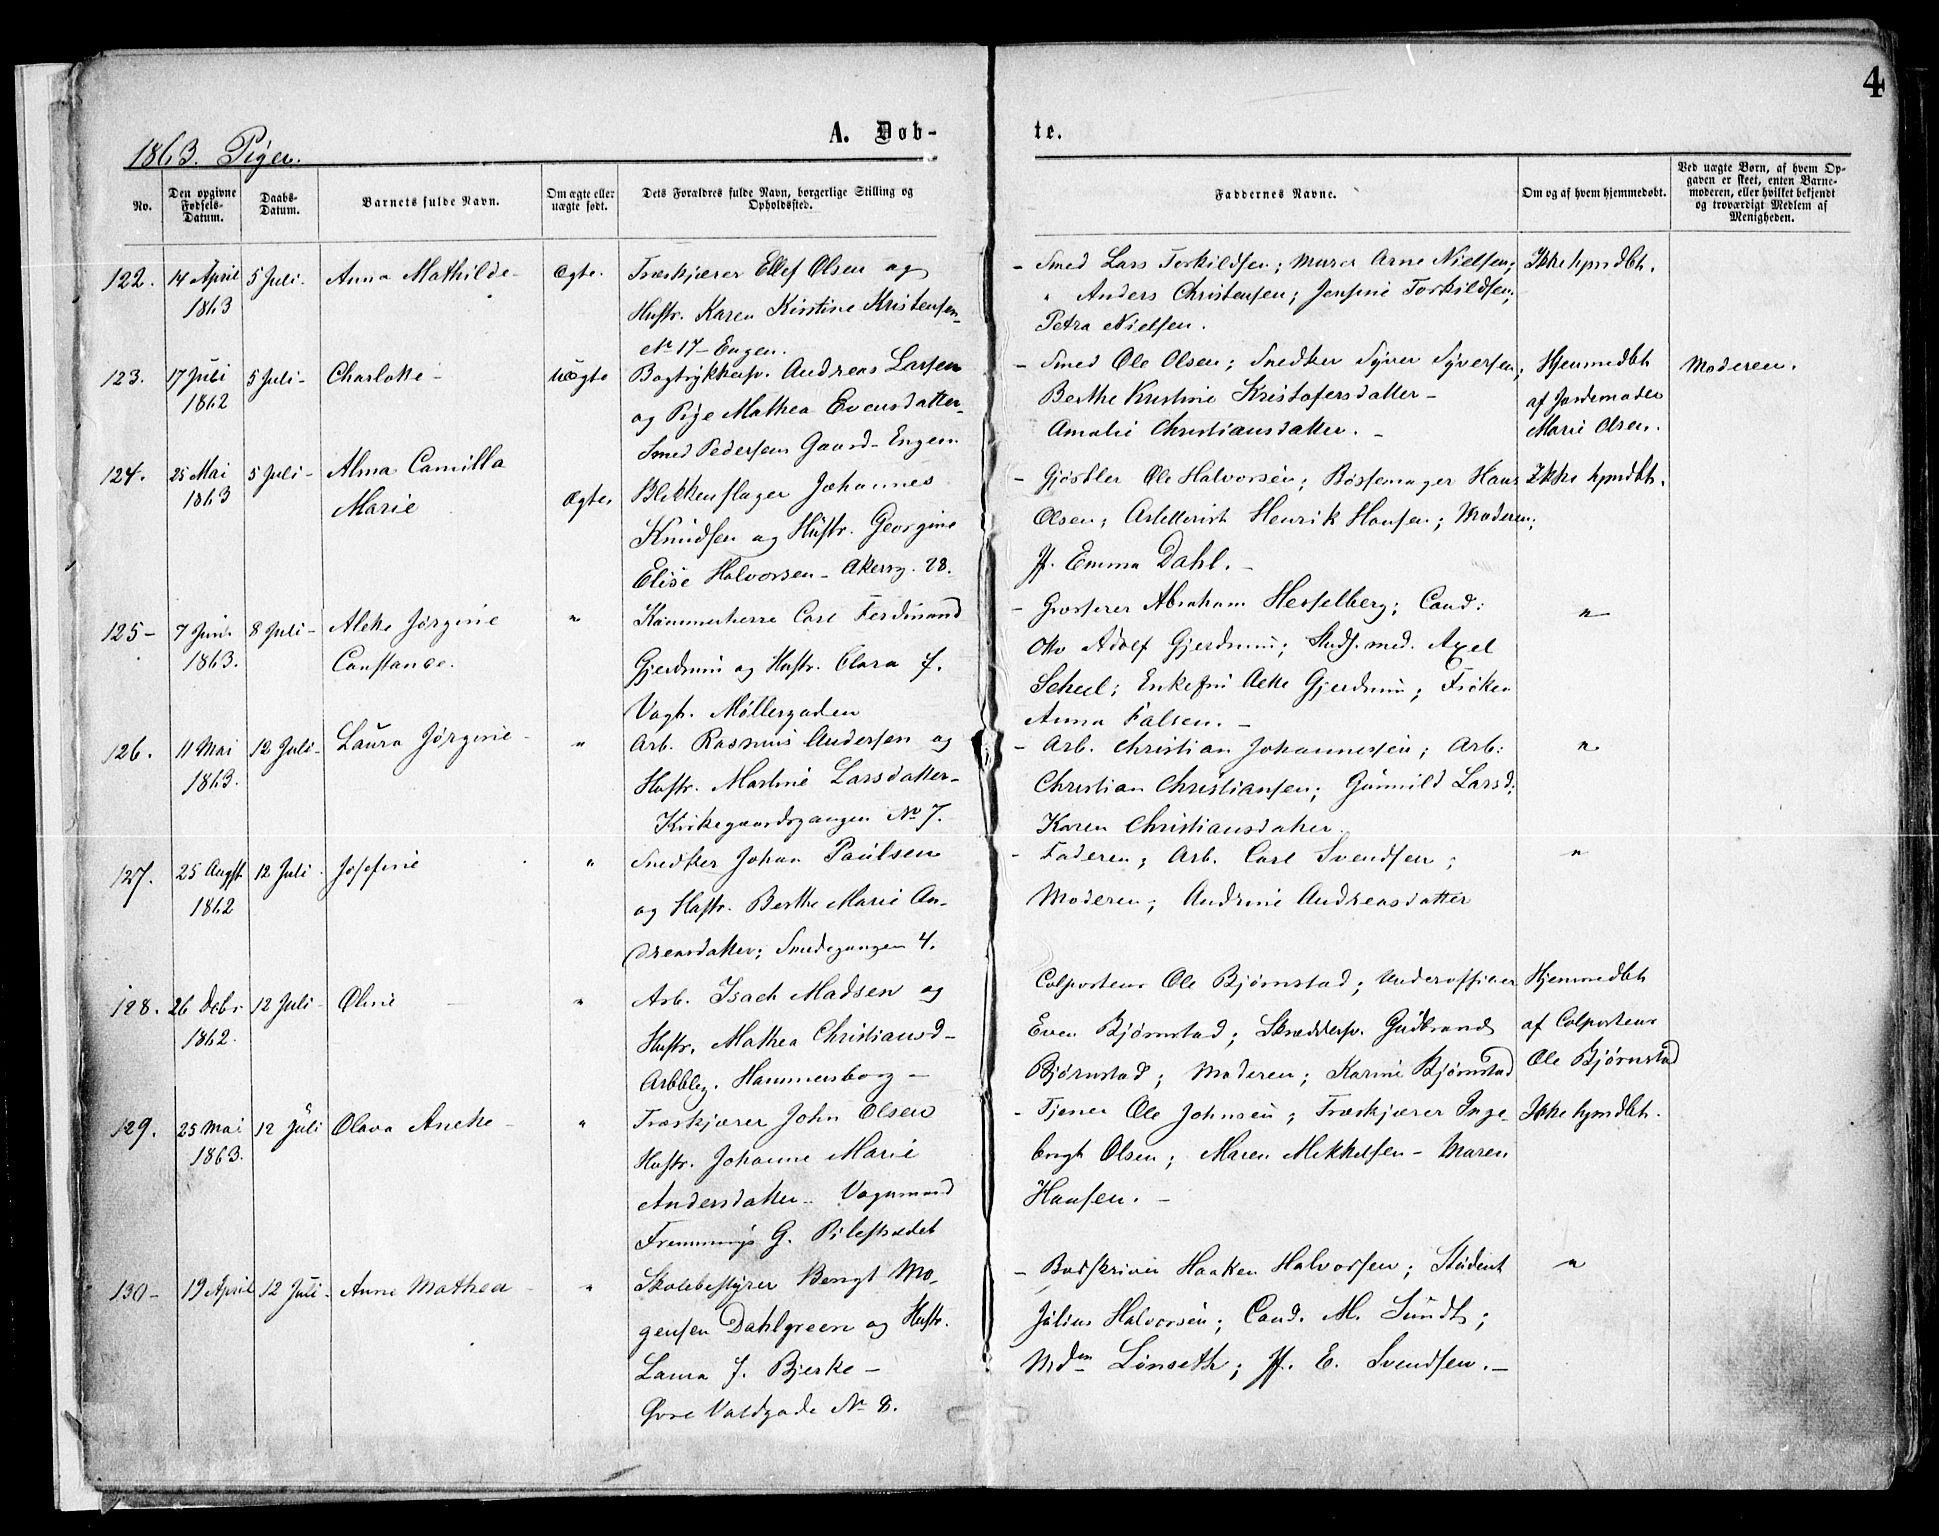 4
1863. Piger.
A. Døb-
te.
No.
Den opgivne Fødsels-Datum.
Daabs-Datum.
Barnets fulde Navn.
Om ægte eller uægte født.
Dets Forældres fulde Navn, borgerlige Stilling og Opholdssted.
Faddernes Navne.
Om og af hvem hjemmedøbt.
Ved uægte Børn, af hvem Op-
gaven er skeet, enten Barne-
moderen, eller hvilket bekjendt
og troværdigt Medlem af
Menigheden.
122. 14 April 5 Juli. Anna Mathilde - Ægte. Træskjærer Ellef Olsen og - Smed Lars Torkildsen; Murer Arne Nielsen; Ikke hjmdbt.
1863 Hustr. Karen Kirstine Kristensen - " Anders Christensen; Jensine Torkildsen;
No 17 - Engen. Petra Nielsen.
123. 17 Juli 5 Juli - Charlotte - Uægte Bogtrykkersv. Andreas Larsen - Smed Ole Olsen; Snedker Syver Syversen; Hjemmedbt Moderen.
1862 og Pige Mathea Evensdatter - Berthe Kristine Kristofersdatter - af Jordemoder
Smed Pedersens Gaard - Engen Amalie Christiansdatter. - Marie Olsen.
124. 25 Mai 5 Juli - Alma Camilla
1863 Marie Ægte. Blikkenslager Johannes - Gjørtler Ole Halvorsen; Bøssemager Hans Ikke hjmdbt.
Knudsen og Hustr. Georgine Olsen; Artillerist Henrik Hansen; Moderen;
Elise Halvorsen - Akersv. 28. Jf. Emma Dahl. -
125 - 7 Juni. 8 Juli - Alette Jørgine " Kammerherre Carl Ferdinand - Grosserer Abraham Hesselberg; Cand: "
1863. Constance. Gjerdrum og Hustr. Clara F. Otto Adolf Gjerdrum; Stud. med. Axel
Vogt. Møllergaden Scheel; Enkefru Alette Gjerdrum; Frøken
Anna Falsen. -
126. 11 Mai 12 Juli - Laura Jørgine - " Arb. Rasmus Andersen og - Arb. Christian Johannesen; Arb: "
1863. Hustr. Martine Larsdatter - Christian Christiansen; Gunnild Larsd;
Kirkegaardsgangen No 7. Karen Christiansdatter.
127. 25 Augst 12 Juli. Josefine " Snedker Johan Paulsen - Faderen; Arb. Carl Svendsen; "
1862 og Hustr. Berthe Marie An- Moderen; Andrine Andreasdatter
dreasdatter; Smedgangen 4.
128. 26 Debr. 12 Juli - Oline - " Arb. Isach Madsen og Colporteur Ole Bjørnstad; Underofficer Hjemmedbt
1862. Hustr. Mathea Christiansd - Even Bjørnstad; Skræddersv. Gudbrand af Colporteur
Arbblg. Hammersborg - Bjørnstad; Moderen; Karine Bjørnstad Ole Bjørnstad
129. 25 Mai 12 Juli Olava Anette - " Træskjærer John Olsen - Tjener Ole Johnsen; Træskjærer Inge- Ikke hjmdbt.
1863. Hustr. Johanne Marie brigt Olsen; Maren Mikkelsen - Maren
Andersdatter - Vognmand Hansen. -
Fremmings G. Pilestrædet
130 - 19 April 12 Juli - Anne Mathea - " Skolebestyrer Bengt Mo- - Budskriver Haaken Halvorsen; Student "
gensen Dahlgreen og Hustr. Julius Halvorsen; Cand. M. Sundt;
Laura J. Bjerke - Mdm Lønseth; Jf. E. Svendsen. -
Øvre Voldgade No 8.